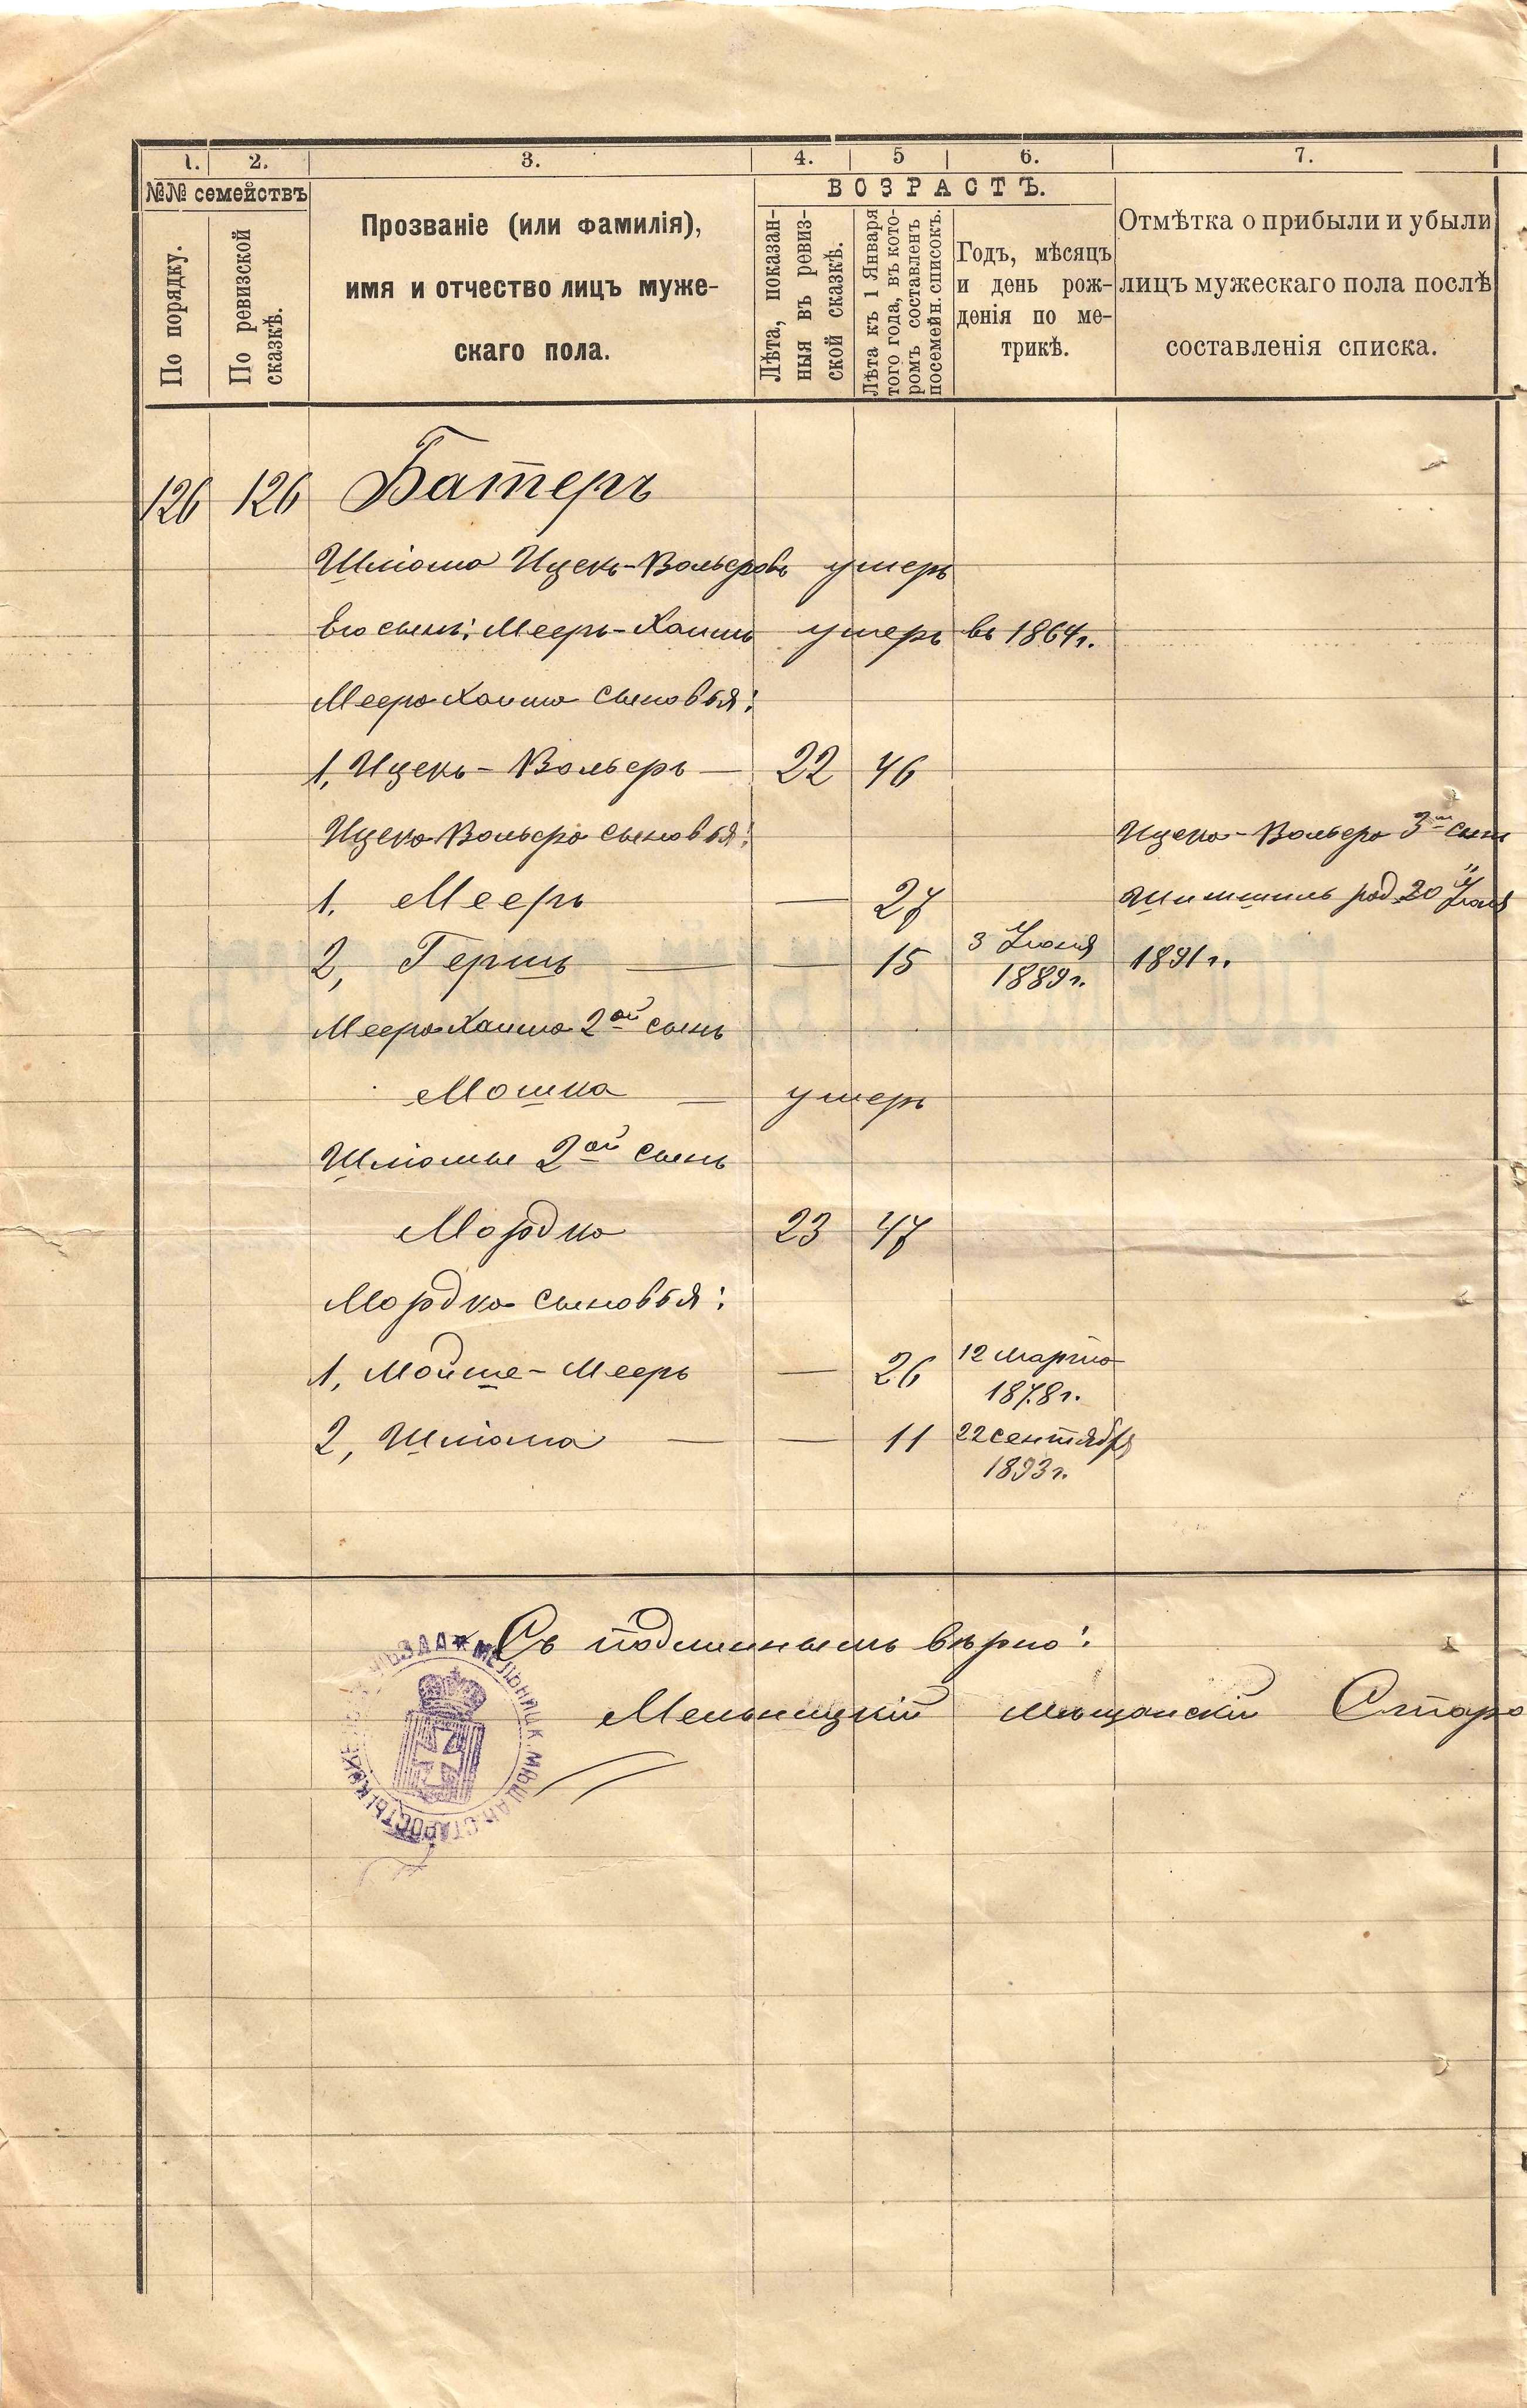 1. 2. 3. 4. 5 6. 7.
№№ семействъ
По порядку.
По ревизской сказкѣ.
Прозваніе (или фамилія),
имя и отчество лицъ муже-
скаго пола.
ВОЗРАСТЪ.
Лѣта, показан-
ныя въ ревиз-
ской сказкѣ.
Лѣта къ 1 Января
того года, въ кото-
ромъ составленъ
посемейн. списокъ.
Годъ, мѣсяцъ
и день рож-
денія по ме-
трикѣ.
Отмѣтка о прибыли и убыли
лицъ мужескаго пола послѣ
составленія списка.
126 126 Батеръ
Шліома Ицекъ-Вольеровъ умеръ
Его сынъ: Мееръ-Хаимъ умеръ въ 1864г.
Меера Хаима сыновья:
1, Ицекъ-Вольеръ — 22 46
Ицека Вольера сыновья:
Ицека-Вольера 3й сынъ
1. Мееръ — 27
род. 20 Іюля
2, Гершъ — — 15 3 Іюня
1889г.
1891г.
Меера Хаима 2ой сынъ
Мошка — умеръ
Шліомы 2ой сынъ
Мордко 23 47
Мордка сыновья:
1, Мойше-Мееръ — 26 12 марта
1878г.
2, Шліома — — 11 22 сентября
1893г.
Съ подлиннымъ вѣрно:
Мельницкій мѣщанскій Старо
УѢЗДА * МЕЛЬНИЦК. МѢЩАН. СТАРОСТЫ